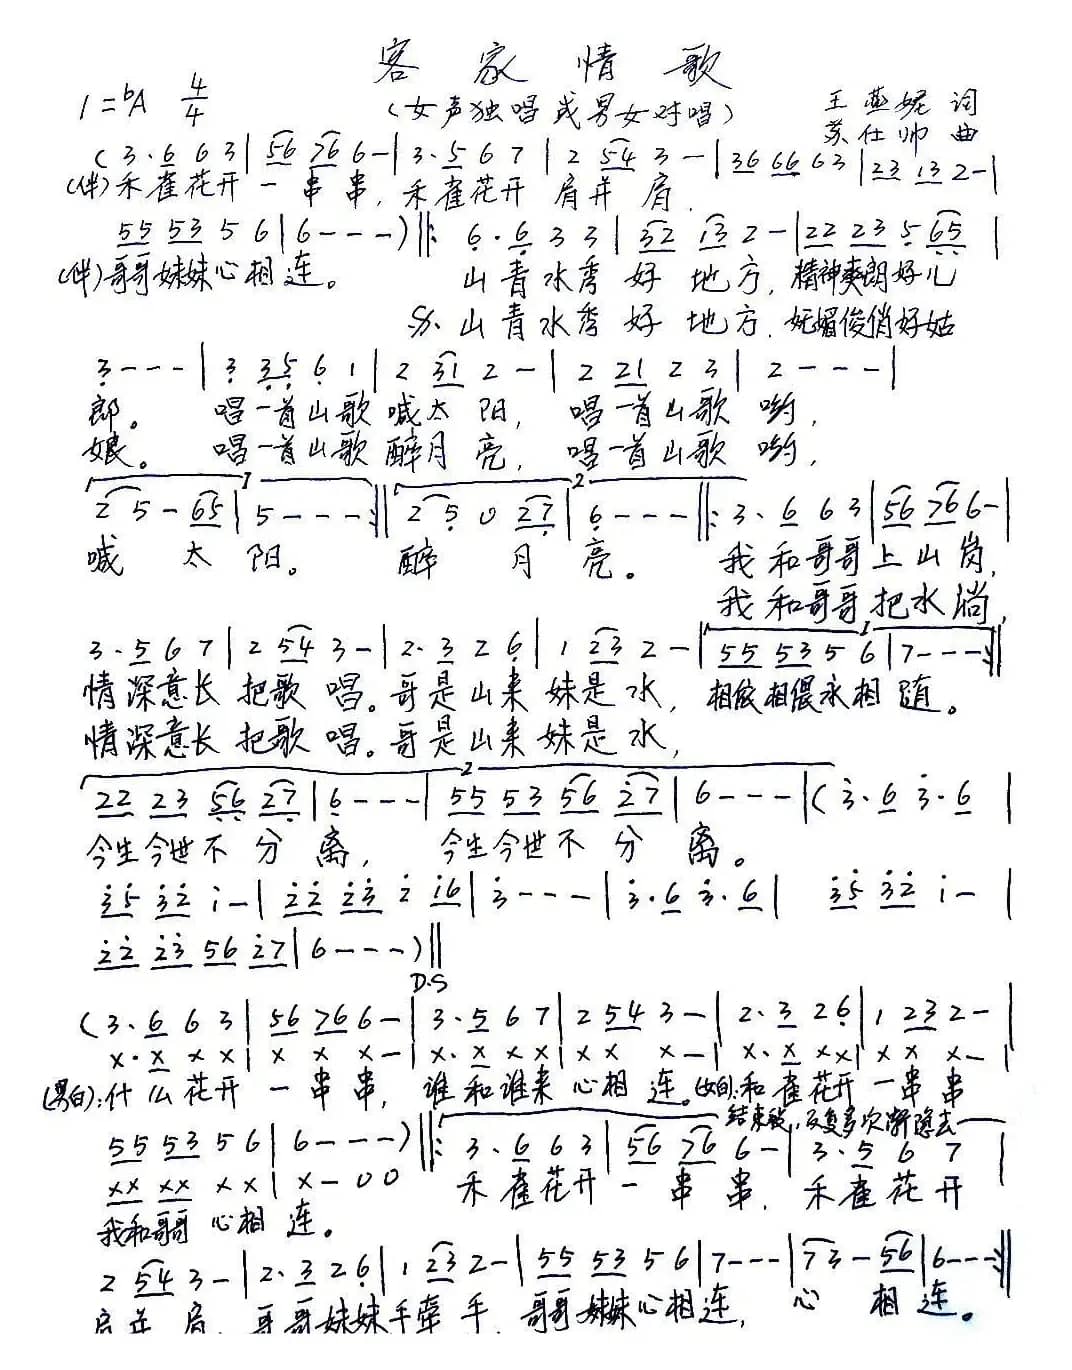 客家情歌
1=bA 4/4 (女声独唱或男女对唱) 王燕妮 词
苏仕帅 曲
(3·6 6 3|56 76 6-|3·5 6 7|2 54 3-|36 66 63|23 13 2-|
(伴)禾雀花开一串串,禾雀花开肩并肩.
55 53 5 6|6---)‖:6·6 3 3|32 13 2-|22 23 5 65|
(伴)哥哥妹妹心相连。山青水秀好地方,精神爽朗好儿
S.山青水秀好地方.妩媚俊俏好姑
3---|3 35 6 1|2 31 2-|2 21 2 3|2---|
郎。唱一首山歌喊太阳,唱一首山歌哟,
娘。唱一首山歌醉月亮,唱一首山歌哟,
1 2
2 5-65|5---:‖2 5 0 27|6---‖:3·6 6 3|56 76 6-|
喊太阳。醉月亮。我和哥哥上山岗,
我和哥哥把水淌,
1
3·5 6 7|2 54 3-|2·3 2 6|1 23 2-|55 53 5 6|7---:‖
情深意长把歌唱。哥是山来妹是水,相依相偎永相随。
情深意长把歌唱。哥是山来妹是水,
2
22 23 56 27|6---|55 53 56 27|6---|(3·6 3·6|
今生今世不分离,今生今世不分离。
35 32 1-|22 23 2 16|3---|3·6 3·6|35 32 1-|
22 23 56 27|6---)‖
D.S
(3·6 6 3|56 76 6-|3·5 6 7|2 54 3-|2·3 2 6|1 23 2-|
x·x x x|x x x-|x·x x x|x x x-|x·x x x|x x x-|
(男白):什么花开一串串,谁和谁来心相连。(女白):和雀花开一串串
结束段,反复多次渐隐去
55 53 5 6|6---)‖:3·6 6 3|56 76 6-|3·5 6 7|
xx xx x x|x-0 0 禾雀花开一串串,禾雀花开
我和哥哥心相连。
2 54 3-|2·3 2 6|1 23 2-|55 53 5 6|7---|73-56|6---:‖
肩并肩,哥哥妹妹手牵手,哥哥妹妹心相连,心相连。